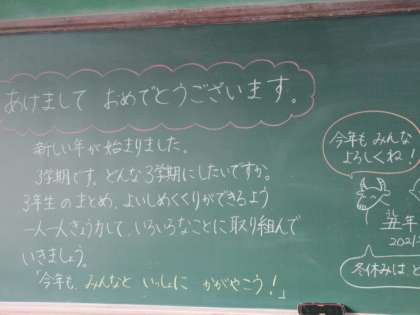 あけまして おめでとうございます。
新しい年が始まりました。
3学期です。どんな3学期にしたいですか。
3年生のまとめ、よいしめくくりができるよう
一人一人きょう力して、いろいろなことに取り組んで
いきましょう。
「今年も、みんなと いっしょに かがやこう!」
今年も みんな
よろしくね!
丑年
2021
冬休みは